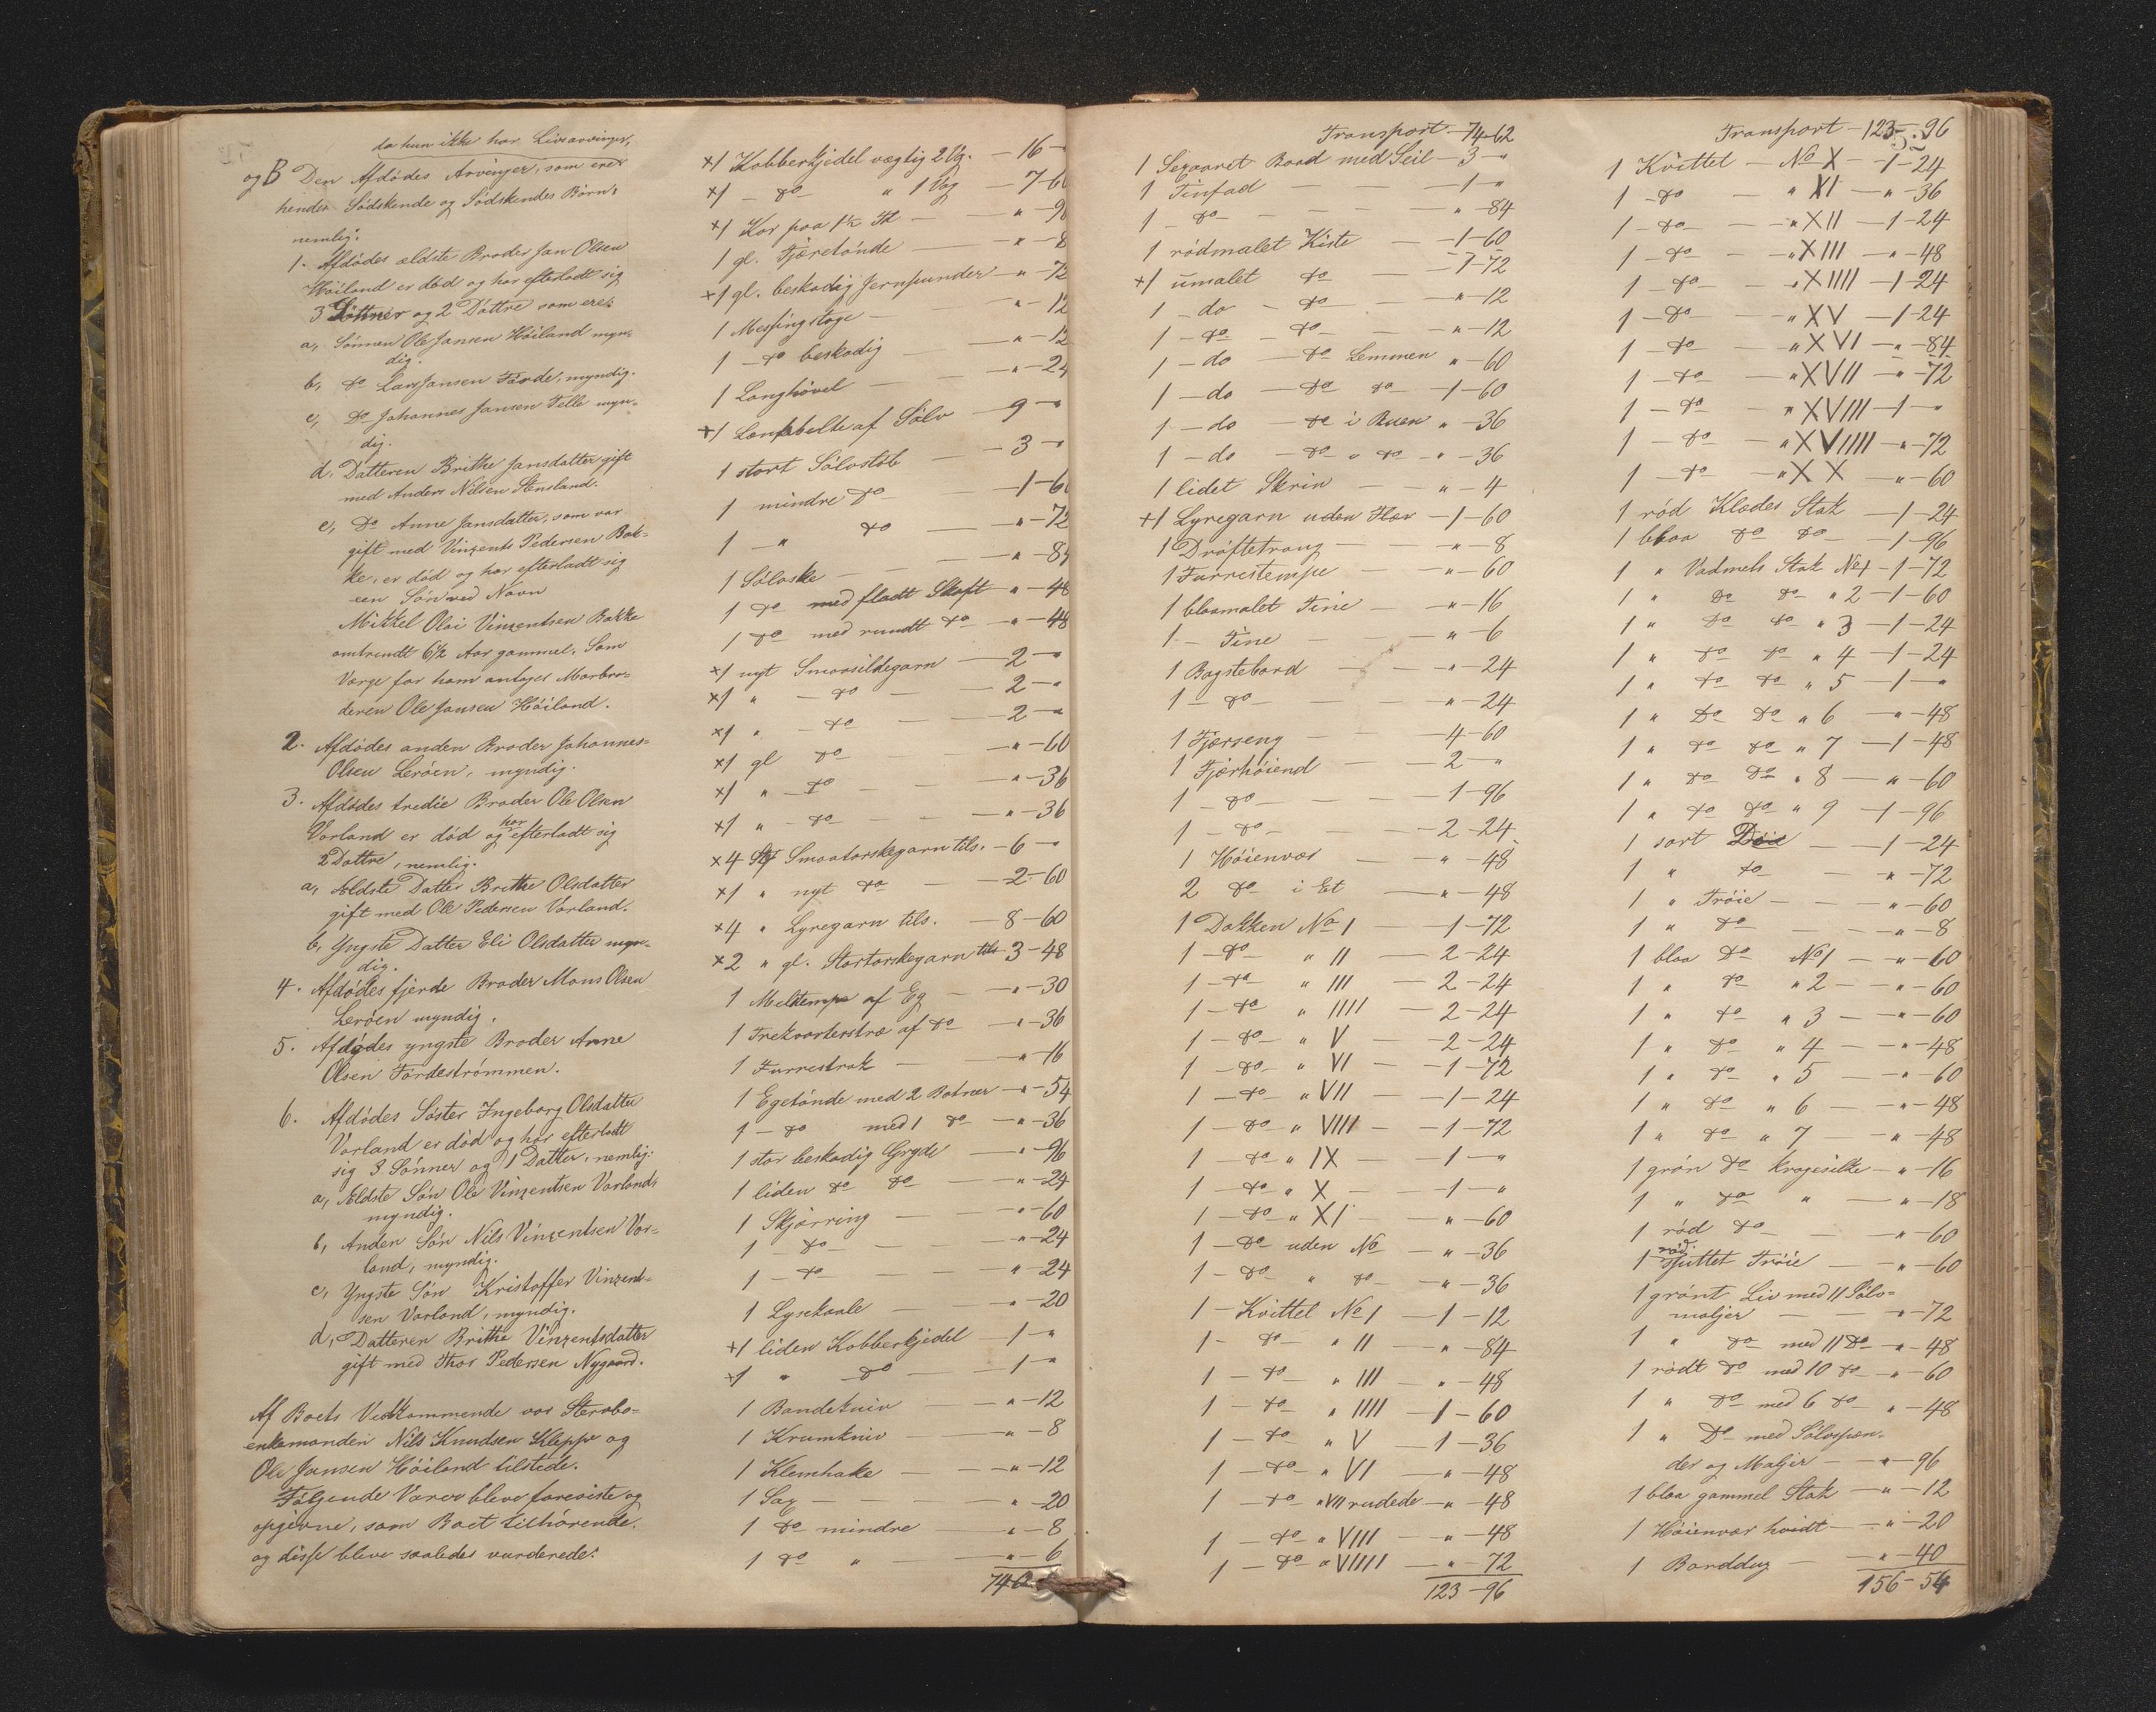 da hun ikke har Livsarvinger,
og B Den Afdødes Arvinger, som ere:
hendes Södskende og Södskendes Börn:
nemlig:
1. Afdödes ældste Broder Jan Olsen
Höiland er död og har efterladt sig
3 Sönner og 2 Döttre som ere:
a, Sönnen Ole Jansen Höiland myn-
dig.
b, Do Lars Jansen Förde, myndig.
c, Do Johannes Jansen Telle myn-
dig.
d. Datteren Brithe Jansdatter gift
med Anders Nilsen Stensland.
e, Do Anne Jansdatter, som var
gift med Vinzents Pedersen Bak-
ke, er död og har efterladt sig
een Sön ved Navn
Mikkel Olai Vinzentsen Bakke
ombrendt 6½ Aar gammel. Som
Verge for ham antoges Morbro-
deren Ole Jansen Höiland.
2. Afdödes anden Broder Johannes
Olsen Leröen, myndig.
3. Afdödes tredie Broder Ole Olsen
Vorland er död og har efterladt sig
2 Döttre, nemlig.
a, Ældste Datter Brithe Olsdatter
gift med Ole Pedersen Vorland.
b, Yngste Datter Eli Olsdatter myn-
dig.
4. Afdödes fjerde Broder Mons Olsen
Leröen myndig.
5. Afdödes yngste Broder Anne
Olsen Fördeströmmen.
6. Afdödes Söster Ingeborg Olsdatter
Vorland er död og har efterladt
sig 3 Sönner og 1 Datter, nemlig:
a, Ældste Sön Ole Vinzentsen Vorland,
myndig.
b, Anden Sön Nils Vinzentsen Vor-
land, myndig.
c, Yngste Sön Kristoffer Vinzent-
sen Vorland, myndig.
d, Datteren Brithe Vinzentsdatter
gift med Thor Pedersen Nygaard.
Af Boets Vedkommende var Stervbo-
enkemanden Nils Knudsen Kleppe og
Ole Jansen Höiland tilstede.
Fölgende Varer bleve foreviste og
opgivne, som Boet tilhörende.
og disse bleve saaledes vurderede:
×1 Kobberkjedel vægtig 2 Vg. — 16 — "
×1 — Do — " 1 Vog — 7-60
×1 Kar paa 1½ — " — 9
1 gl. Tjæretönde — " — 8
×1 gl. beskadig Jernpunder — " — 72
1 Messingstage — " — 12
1 — Do beskadig — " — 12
1 Langhövel — " — 24
×1 af Sölv — 9 — "
1 stort Sölvstöb — 3 — "
1 mindre Do — 1-60
1 — " Do — " — 72
1 Sölvske — " — 84
1 Do med fladt Skaft — " — 48
1 Do med rundt Do — " — 48
×1 nyt Smaasildegarn — 2 — "
×1 " — Do — 2 — "
×1 " — Do — 2 — "
×1 gl Do — " — 60
×1 " — Do — " — 36
×1 " — Do — " — 36
×4 Stk Smaatorskegarn tils. — 6 — "
×1 " nyt Do — 2-60
×4 " Lyregarn tils. — 8-60
×2 " gl. Stortorskegarn tils 3-48
1 Meltempe af Eg — " — 30
1 af Do — " — 36
1 Furrestrak — " — 16
1 Egetönde med 2 Botner — " — 54
1 — Do med 1 Do — " — 36
1 stor beskadig Gryde — " — 96
1 liden Do Do — " — 24
1 Skjærring — " — 60
1 — Do — " — 24
1 — Do — " — 24
1 Lysekaale — " — 20
×1 liden Kobberkjedel — 1 — "
×1 " Do — 1 — "
1 Bandekniv — " — 12
1 Krumkniv — " — 8
1 Klemhake — " — 12
1 Sag — " — 20
1 Do mindre — " — 8
1 Do " — " — 6
746
Transport — 74-62
1 Sexaaret Baad med Seil — 3 — "
1 Tinfad — 1 — "
1 — Do — " — 84
1 rödmalet Kiste — 1-60
×1 umalet Do — 1-72
1 — do — Do — " — 12
1 — Do — Do — " — 12
1 — do — Do Lemmen " — 60
1 — do — Do Do — 1-60
1 — do — Do i Buen " — 36
1 — do — Do " Do — " — 36
1 lidet Skrin — " — 4
×1 Lyregarn uden Flær — 1-60
1 Dröftetroug — " — 8
1 Furrestempe — " — 60
1 blaamalet Tine — " — 16
1 — Tine — " — 6
1 Bagstebord — " — 24
1 — Do — " — 24
1 Fjærseng — 4-60
1 Fjærhöiend — 2 — "
1 — Do — 1-96
1 — Do — 2-24
1 Höienvar — " — 48
2 Do i Et — " — 48
1 Dakken No 1 — 1-72
1 — Do " II — 2-24
1 — Do " III — 2-24
1 — Do " IIII — 2-24
1 — Do " V — 2-24
1 — Do " VI — 1-72
1 — Do " VII — 1-24
1 — Do " VIII — 1-72
1 — Do " IX — 1 — "
1 — Do " X — 1 — "
1 — Do " XI — " — 60
1 — Do uden No — " — 36
1 — Do " Do — " — 36
1 — Kvittel No 1 — 1-12
1 — Do — " II — " — 84
1 — Do " III — " — 48
1 — Do " IIII — 1-60
1 — Do " V — 1-36
1 — Do " VI — " — 48
1 — Do " VII rudede — " — 48
1 — Do " VIII — " — 48
1 — Do " VIIII — " — 72
123-96
Transport — 123-96
1 Kvittel — No X — 1-24
1 — Do — " XI — " — 36
1 — Do — " XII — 1-24
1 — Do — " XIII — " — 48
1 — Do — " XIIII — 1-24
1 — Do — " XV — 1-24
1 — Do — " XVI — " — 84
1 — Do — " XVII — " — 72
1 — Do — " XVIII — 1 — "
1 — Do — " XVIIII — " — 72
1 — Do — " XX — " — 60
1 röd Klædes Stak — 1-24
1 blaa Do Do — 1-96
1 " Vadmels Stak No 1 — 1-72
1 " Do Do " 2 — 1-60
1 " Do Do " 3 — 1-24
1 " Do Do " 4 — 1-24
1 " Do Do " 5 — 1 — "
1 " Do Do " 6 — " — 48
1 " Do Do " 7 — 1-48
1 " Do Do " 8 — " — 60
1 " Do Do " 9 — 1-96
1 sort — 1-24
1 " Do — " — 72
1 " Tröie — " — 60
1 " Do — " — 8
1 blaa Do No 1 — " — 60
1 " Do " 2 — " — 60
1 " Do " 3 — " — 60
1 " Do " 4 — " — 48
1 " Do " 5 — " — 60
1 " Do " 6 — " — 48
1 " Do " 7 — " — 48
1 grön Do — " — 16
1 " Do " — " — 18
1 röd Do — " — 60
1 röd spittet Tröie — " — 60
1 grönt Liv med 11 Sölv-
maljer — " — 72
1 " Do med 11 Do — " — 48
1 rödt Do med 10 Do — " — 60
1 " Do med 6 Do — " — 48
1 " Do med Sölvspæn-
der og Maljer — " — 96
1 blaa gammel Stak — " — 12
1 Höienvar hvidt — " — 20
1 Borddug — " — 40
156-54